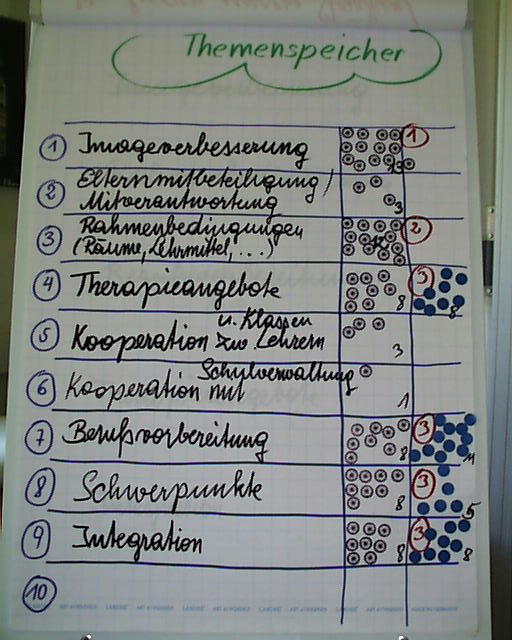 Themenspeicher
1 Imageverbesserung 13 1
2 Elternmitbeteiligung/
Mitverantwortung 3
3 Rahmenbedingungen 2
(Räume, Lehrmittel, ...)
4 Therapieangebote 8 3 8
u. Klassen
5 Kooperation zw Lehrern 3
Schulverwaltung
6 Kooperation mit 1
7 Berufsvorbereitung 8 3 11
8 Schwerpunkte 8 3 5
9 Integration 8 3 8
10